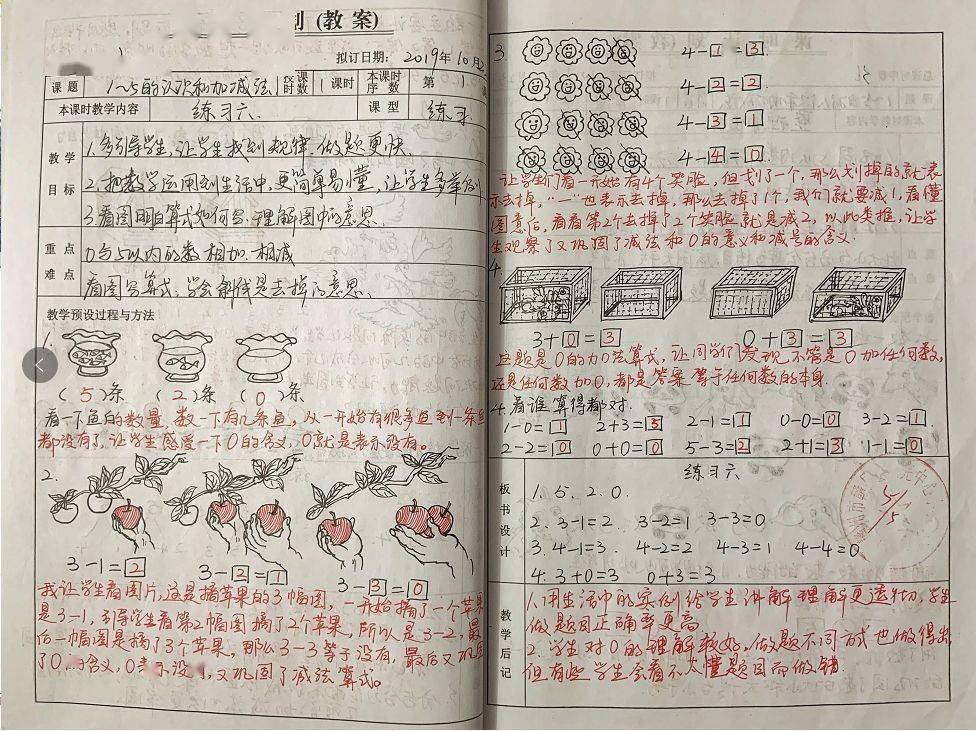 划(教案)
拟订日期: 2019年10月
课题 1~5的认识和加减法 课时数 1课时 本课时序数 第
本课时教学内容 练习六 课型 练习
教学目标
1.多引导学生,让学生找到规律,做题更快
2.把数学运用到生活中,更简单易懂,让学生多举例
3.看图明白算式如何写,理解图中的意思.
重点难点
0与5以内的数相加.相减
看图写算式,学会斜线是去掉的意思.
教学预设过程与方法
1.
(5)条 (2)条 (0)条
看一下鱼的数量,数一下有几条鱼,从一开始有很多鱼到一条鱼
都没有了,让学生感受一下0的含义,0就是表示没有。
2.
3-1=2 3-2=1 3-3=0
我让学生看图片,这是摘苹果的3幅图,一开始摘了一个苹果
是3-1,引导学生看第2幅图摘了2个苹果,所以是3-2,最
后一幅图是摘了3个苹果,那么3-3等于没有,最后又巩固
了0的含义,0表示没有,又巩固了减法算式。
3.
4-1=3
4-2=2
4-3=1
4-4=0
让学生们看一开始有4个笑脸,但划了一个,那么划掉的就表
示去掉,"一"也表示去掉,那么去掉了1个,我们就要减1,看懂
图意后,看看第2个去掉了2个笑脸就是减2,以此类推,让学
生观察了又巩固了减法和0的意义和减号的含义.
4.
3+0=3 0+3=3
这题是0的加法算式,让同学们发现,不管是0加任何数,
还是任何数加0,都是答案等于任何数的本身.
4.看谁算得都对.
1-0=1 2+3=5 2-1=1 0-0=0 3-2=1
2-2=0 0+0=0 5-3=2 2+1=3 1-1=0
板书设计
练习六
1. 5, 2. 0.
2. 3-1=2 3-2=1 3-3=0
3. 4-1=3. 4-2=2 4-3=1 4-4=0
4: 3+0=3 0+3=3
教学后记
1.用生活中的实例给学生讲解理解更透彻,学生
做题目正确率更高
2.学生对0的理解较好,做题不同方式也做得出
但有些学生会看不太懂题目而做错.